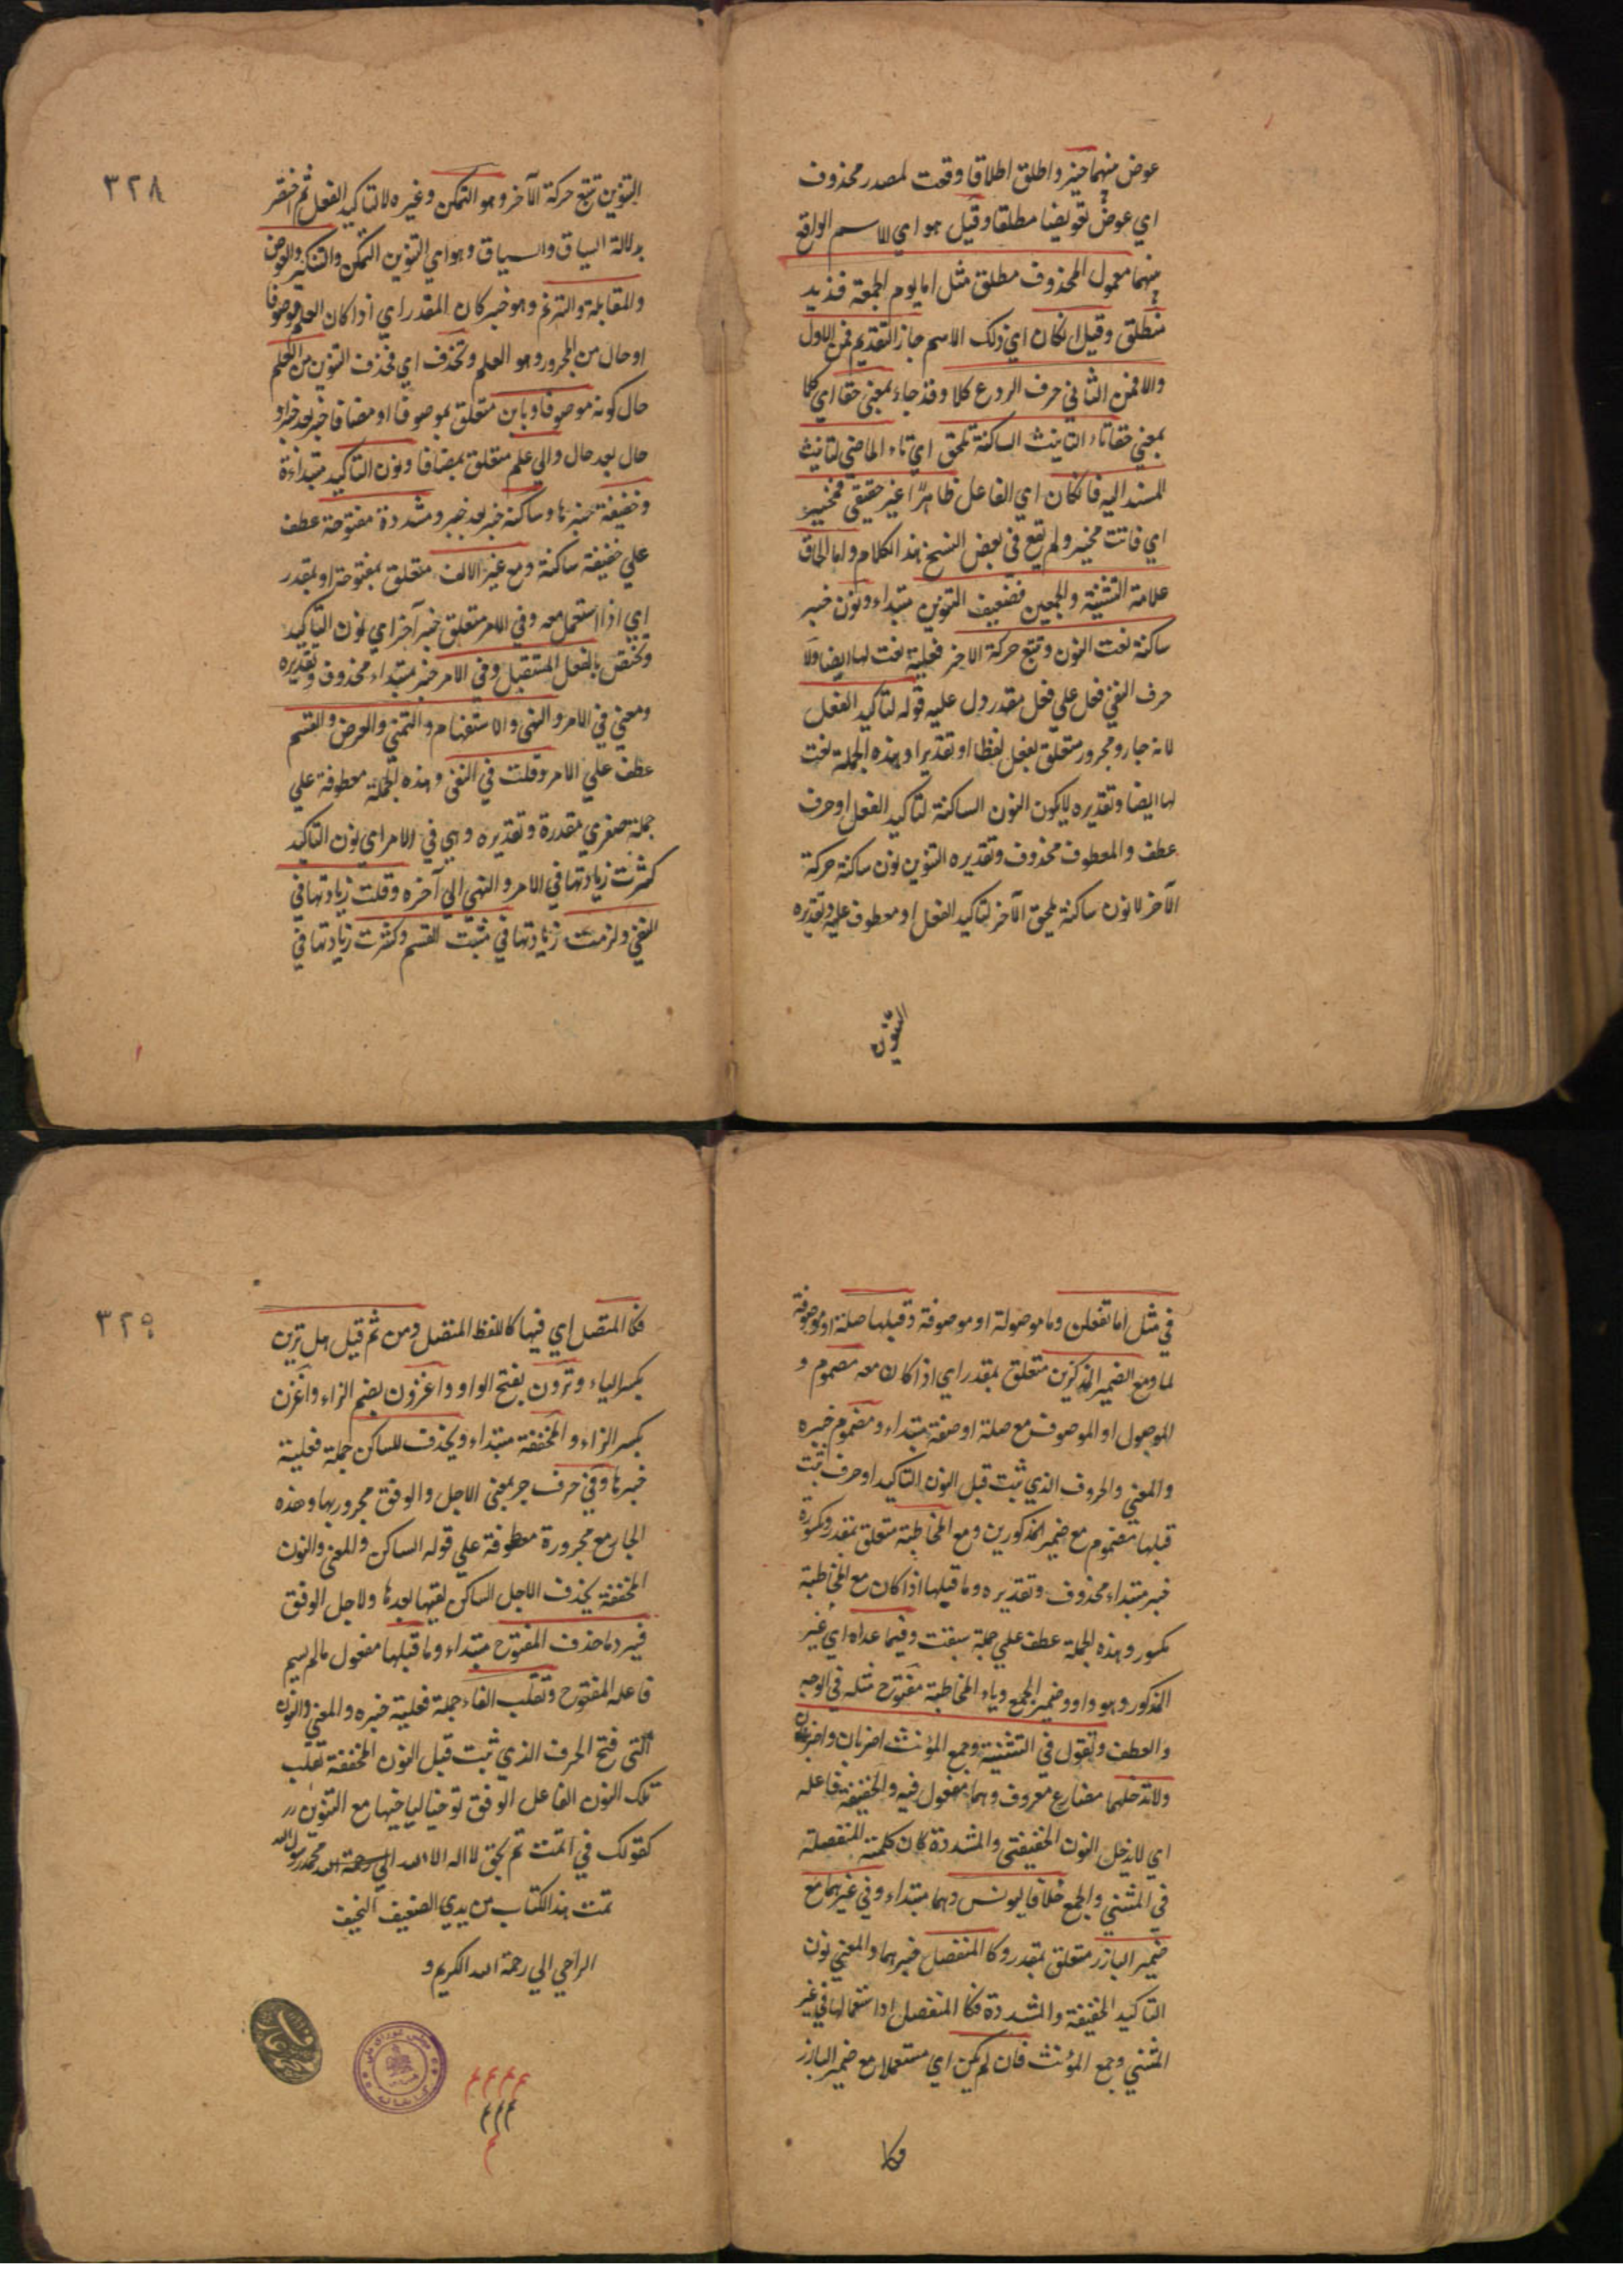 عوض منهما حيز واطلق اطلاقا وقعت لمصدر محذوف
اي عوض تعويضا مطلقا وقيل هو اي الاسم الواقع
منهما معمول المحذوف مطلق مثل اما يوم الجمعة فزيد
منطلق وقيل ان كان اي ذلك الاسم جاز التقديم فمن الاول
والا فمن الثاني حرف الردع كلا وقد جاء بمعني حقا اي كلا
بمعني حقا تاء التانيث الساكنة تلحق اي تاء الماضي لتانيث
المسند اليه فان كان اي الفاعل ظاهرا غير حقيقي فمخير
اي فانت مخير ولم يقع في بعض النسخ هذا الكلام واما الحاق
علامة التثنية والجمعين فضعيف التنوين مبتداء ونون خبر
ساكنة نعت النون وتتبع حركة الاخر فعلية نعت لها ايضا ولا
حرف النفي فعل علي فعل مقدر دل عليه قوله لتاكيد الفعل
لانه جار ومجرور متعلق بفعل لفظا او تقديرا وهذه الجملة نعت
لها ايضا وتقديره لا يكون النون الساكنة لتاكيد الفعل او حرف
عطف والمعطوف محذوف وتقديره التنوين نون ساكنة حركة
الآخر لا نون ساكنة يلحق الآخر لتاكيد الفعل او معطوف عليه وتقديره
التنوين
٣٢٨
التنوين تتبع حركة الآخر وهو التمكن وغيره لا لتاكيد الفعل ثم اختصر
بدلالة السياق والسياق وهو اي التنوين التمكن والتنكير والعوض
والمقابلة والترنم وهو خبر كان المقدر اي اذا كان العلم موصوفا
او حال من المجرور وهو العلم وتحذف اي تحذف التنوين من العلم
حال كونه موصوفا وبابن متعلق بموصوفا او مضافا خبر بعد خبر او
حال بعد حال والي علم متعلق بمضافا ونون التاكيد مبتداءة
وخفيفة خبرها وساكنة خبر بعد خبر ومشددة مفتوحة عطف
علي خفيفة ساكنة ومع غير الالف متعلق بمفتوحة او بمقدر
اي اذا استعمل معه وفي الامر متعلق خبر آخر اي نون التاكيد
وتختص بالفعل المستقبل وفي الامر خبر مبتداء محذوف وتقديره
ومعني في الامر والنهي والاستفهام والتمني والعرض والقسم
عطف علي الامر وقلت في النفي وهذه الجملة معطوفة علي
جملة صغري مقدرة وتقديره وهي في الامر اي نون التاكيد
كثرت زيادتها في الامر والنهي الي آخره وقلت زيادتها في
النفي ولزمت زيادتها في مثبت القسم وكثرت زيادتها في
في مثل اما تفعلن وما موصولة او موصوفة وقبلها صلة او موصوفة
لما ومع الضمير المذكرين متعلق بمقدر اي اذا كان معه مضموم و
الموصول او الموصوف مع صلة او صفة مبتداء ومضموم خبره
والمعني والحروف الذي ثبت قبل النون التاكيد او حرف ثبت
قبلها مضموم مع ضمير المذكورين ومع المخاطبة متعلق بمقدر ومكسورة
خبر مبتداء محذوف وتقديره وما قبلها اذا كان مع المخاطبة
مكسور وهذه الجملة عطف علي جملة سبقت وفيما عداه اي غير
المذكور وهو واو وضمير الجمع وياء المخاطبة مفتوح مثله في الوجه
والعطف وتقول في التثنية وجمع المؤنث اضربان واضربنان
ولا تدخلهما مضارع معروف وهما مفعول فيه والخفيفة فاعله
اي لا يدخل النون الخفيفتي والمشددة كان كلمته المنفصلة
في المثني والجمع خلافا ليونس وهما مبتداء وفي غيرهما مع
ضمير البارز متعلق بمقدر وكا المنفصل خبرهما والمعني نون
التاكيد الخفيفة والمشددة فكا المنفصل اذا ستعمالها في غير
المثني وجمع المؤنث فان لم يكن اي مستعملا مع ضمير البارز
فكا
٣٢٩
فكا المتصل اي فيها كا للفظ المتصل ومن ثم قيل هل ترين
بكسر الياء وترون بفتح الواو واغزون بضم الزاء واغزن
بكسر الزاء والمخففة مبتداء ويحذف للساكن جملة فعلية
خبرها وفي حرف جر بمعني الاجل والوقف مجرور بها وهذه
الجار مع مجرورة معطوفة علي قوله الساكن والمعني والنون
المخففة يحذف الاجل الساكن لقيها بعدها ولاجل الوقف
فيرد ما حذف المفتوح مبتداء وما قبلها مفعول ما لم يسم
فاعله المفتوح وتقلب الفاء جملة فعلية خبره والمعني والنون
التي فتح الحرف الذي ثبت قبل النون المخففة تقلب
تلك النون الفا عل الوقف مع التنوين
كقولك في تمت تم بحق لا اله الا الله محمد رسول الله
تمت هذا الكتاب من يدي الضعيف النحيف
الراجي الي رحمة الله الكريم و
م م م م
م م م
م